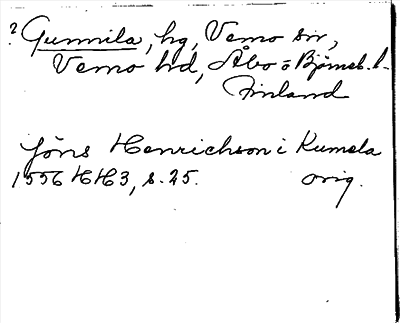 ? Gunnila, hg, Vemo sn,
Vemo hd, Åbo o Björneb. l.
Finland
Jöns Henrichson i Kumela
1556 HH3, s. 25. orig.